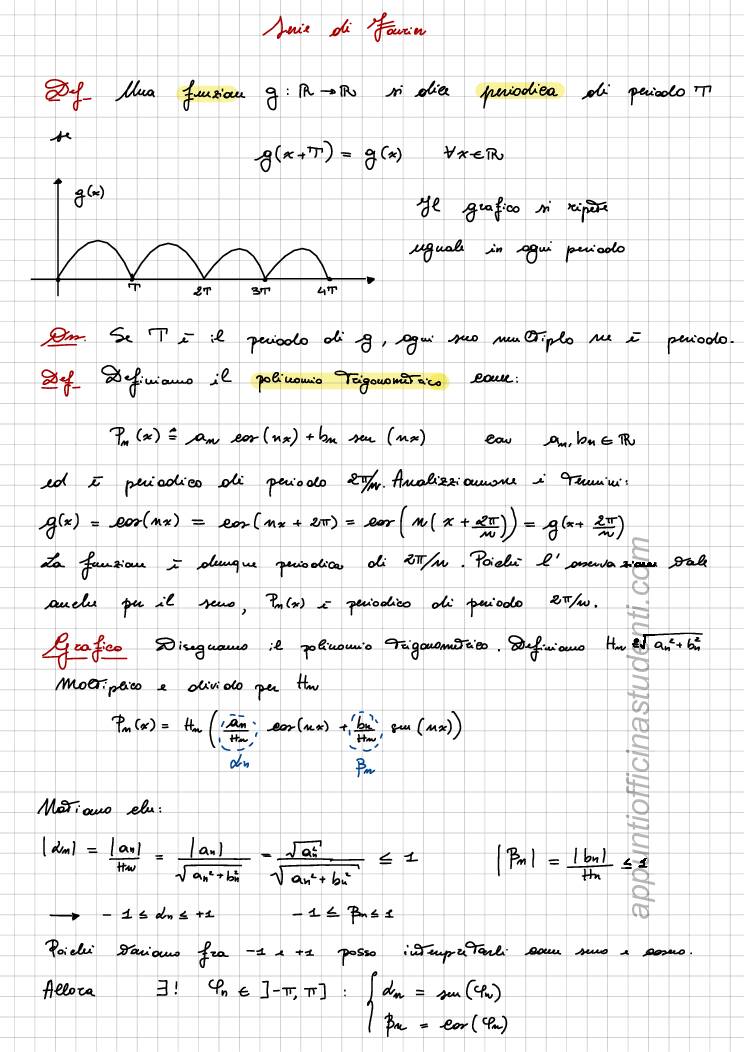 Serie di Fourier
Def Una funzione g : ℝ → ℝ si dice periodica di periodo T
se
g(x+T) = g(x) ∀x∈ℝ
g(x)
Il grafico si ripete
uguale in ogni periodo
T 2T 3T 4T
Oss. Se T è il periodo di g, ogni suo multiplo ne è periodo.
Def Definiamo il polinomio trigonometrico come:
Pn(x) ≜ an cos(nx) + bn sen(nx) con an, bn ∈ ℝ
ed è periodico di periodo 2π/n. Analizziamone i termini:
g(x) = cos(nx) = cos(nx + 2π) = cos(n(x + 2π/n)) = g(x + 2π/n)
La funzione è dunque periodica di 2π/n. Poiché l'osservazione vale
anche per il seno, Pn(x) è periodico di periodo 2π/n.
Grafico Disegnamo il polinomio trigonometrico. Definiamo Hn ≜ √(an² + bn²)
Moltiplico e divido per Hn
Pn(x) = Hn (an/Hn cos(nx) + bn/Hn sen(nx))
αn βn
Notiamo che:
|αn| = |an|/Hn = |an|/√(an² + bn²) = √(an²)/√(an² + bn²) ≤ 1 |βn| = |bn|/Hn ≤ 1
→ -1 ≤ αn ≤ +1 -1 ≤ βn ≤ 1
Poiché variano fra -1 e +1 posso interpretarli come seno e coseno.
Allora ∃! φn ∈ ]-π, π] : { αn = sen(φn)
βn = cos(φn)
appuntiofficinastudenti.com